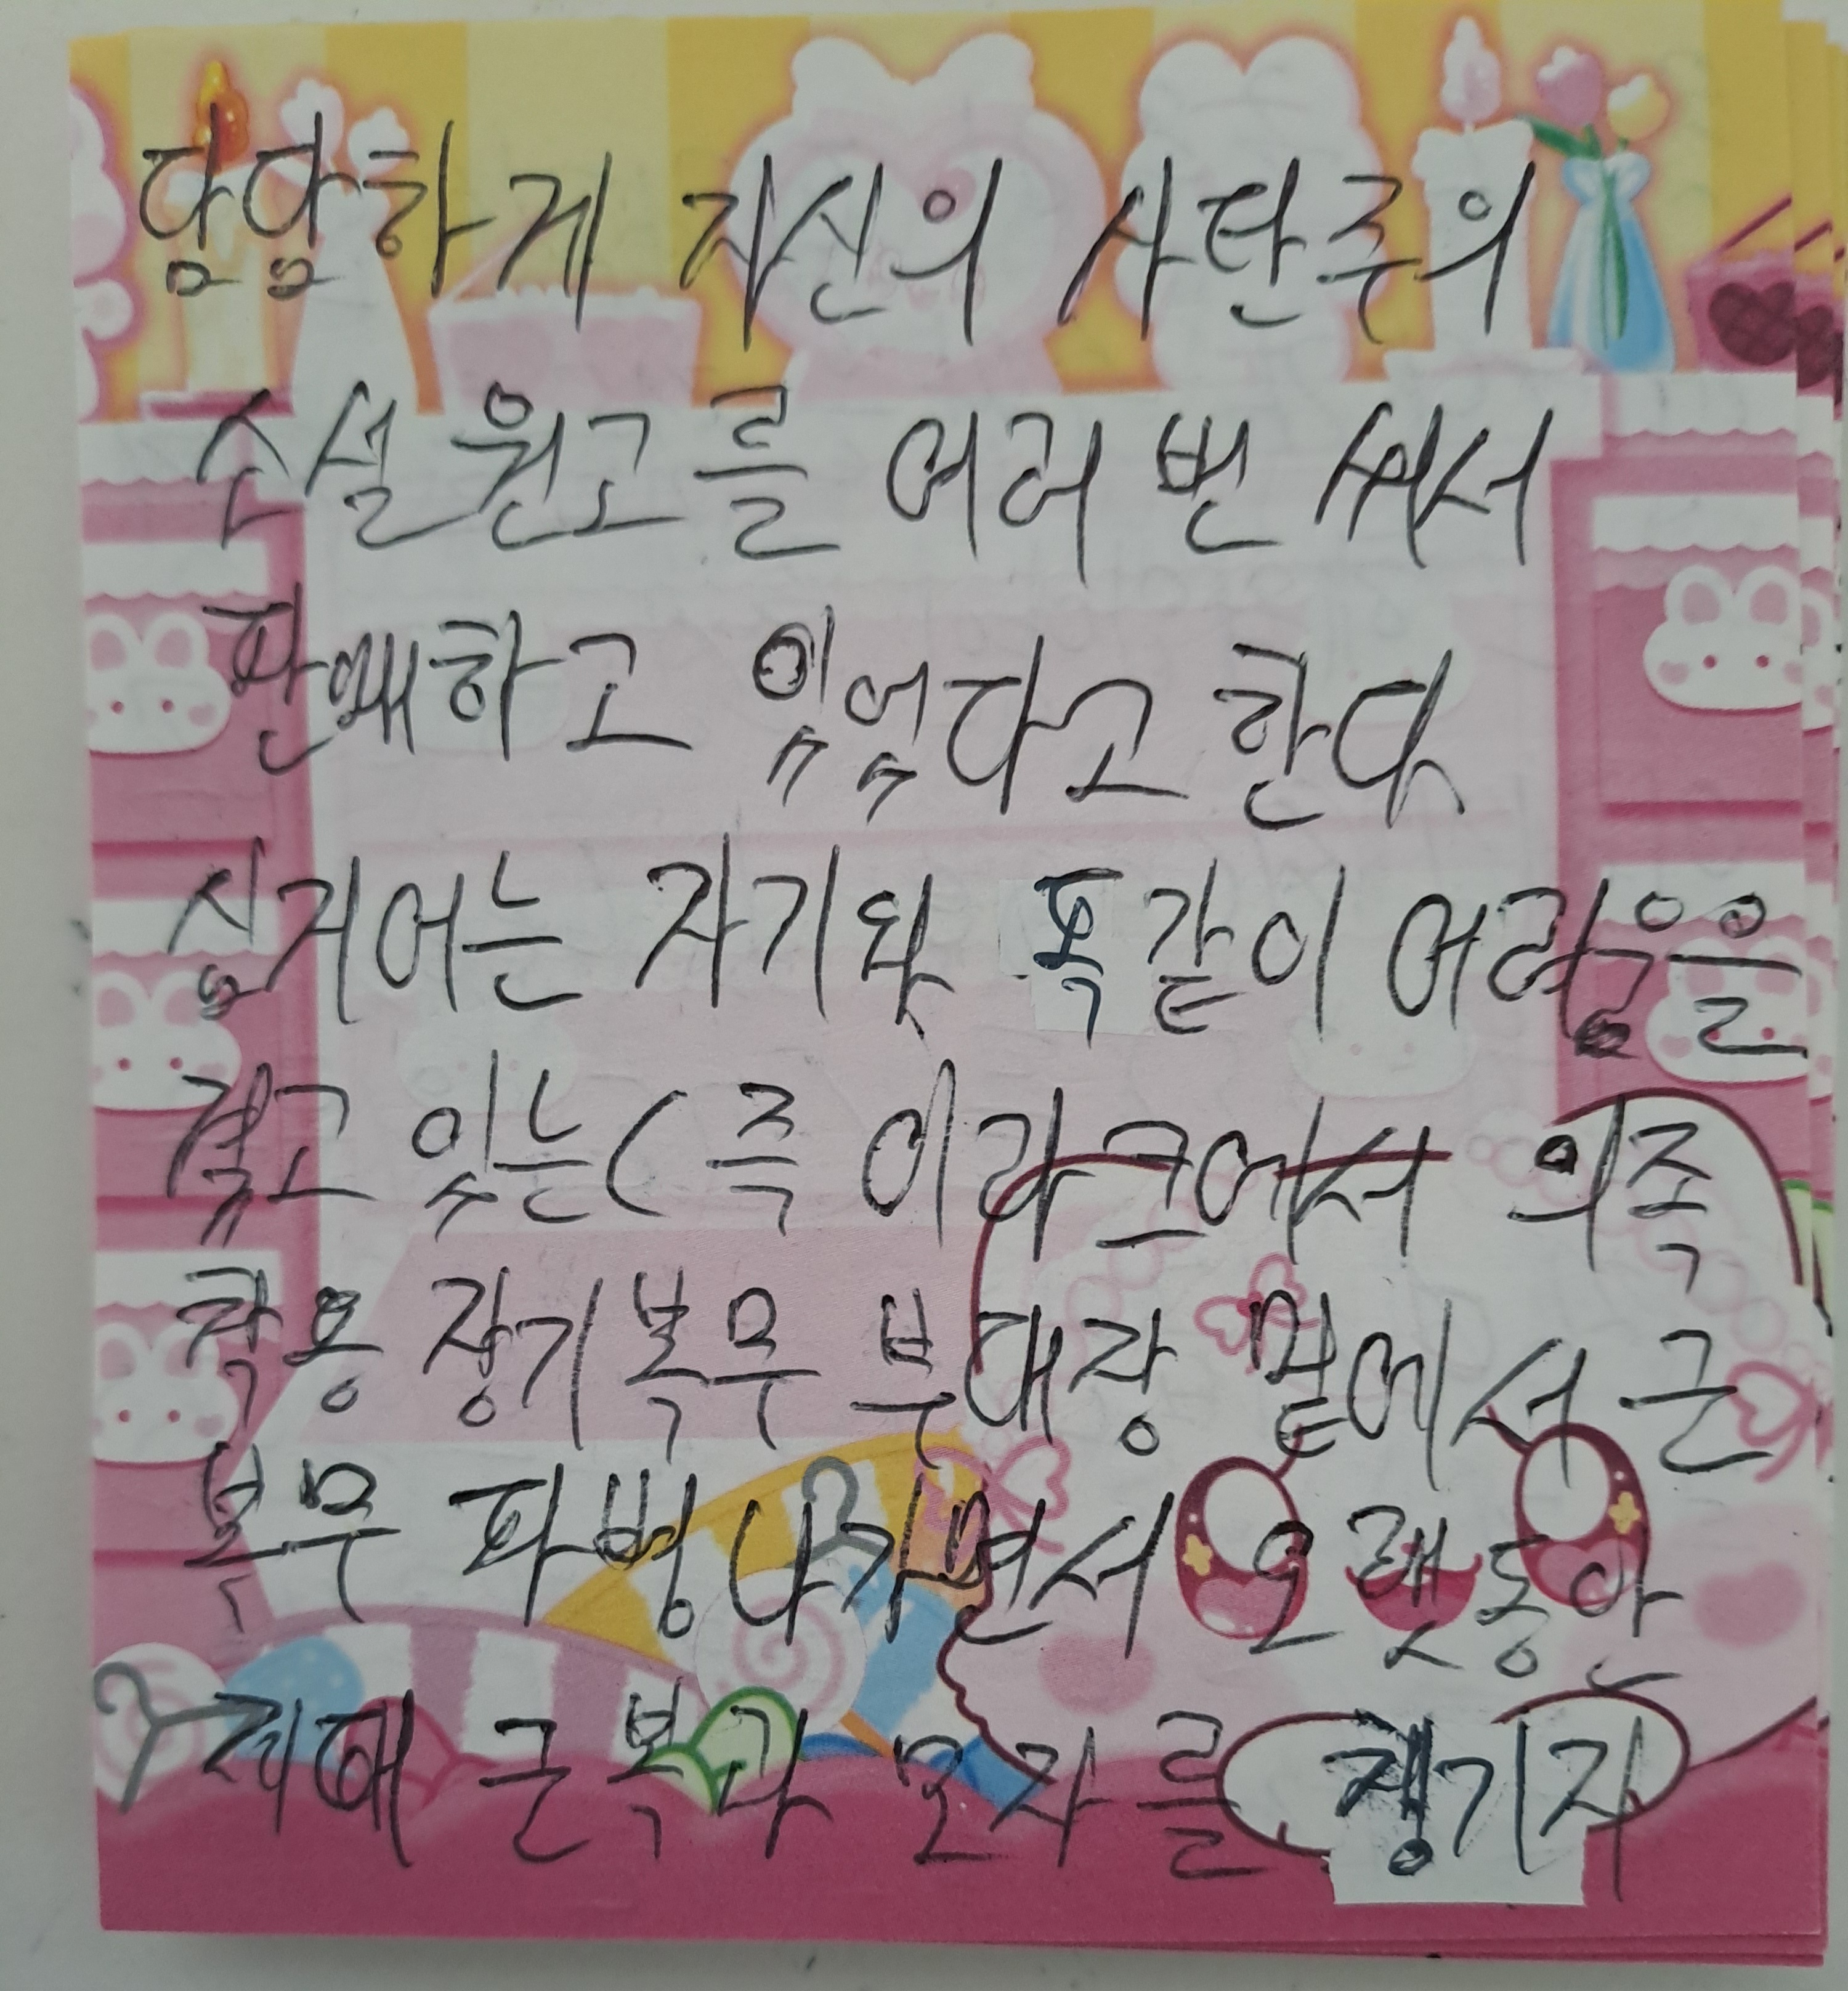 담담하게 자신의 사탄주의
소설 원고를 여러 번 써서
판매하고 있었다고 한다.
심지어는 자기와 똑같이 어려움을
겪고 있는(즉 이라크에서 의족
착용 장기복무 부대장 밑에서 군
복무 파병나가면서 오랫동안
군복과 모자를 챙기자